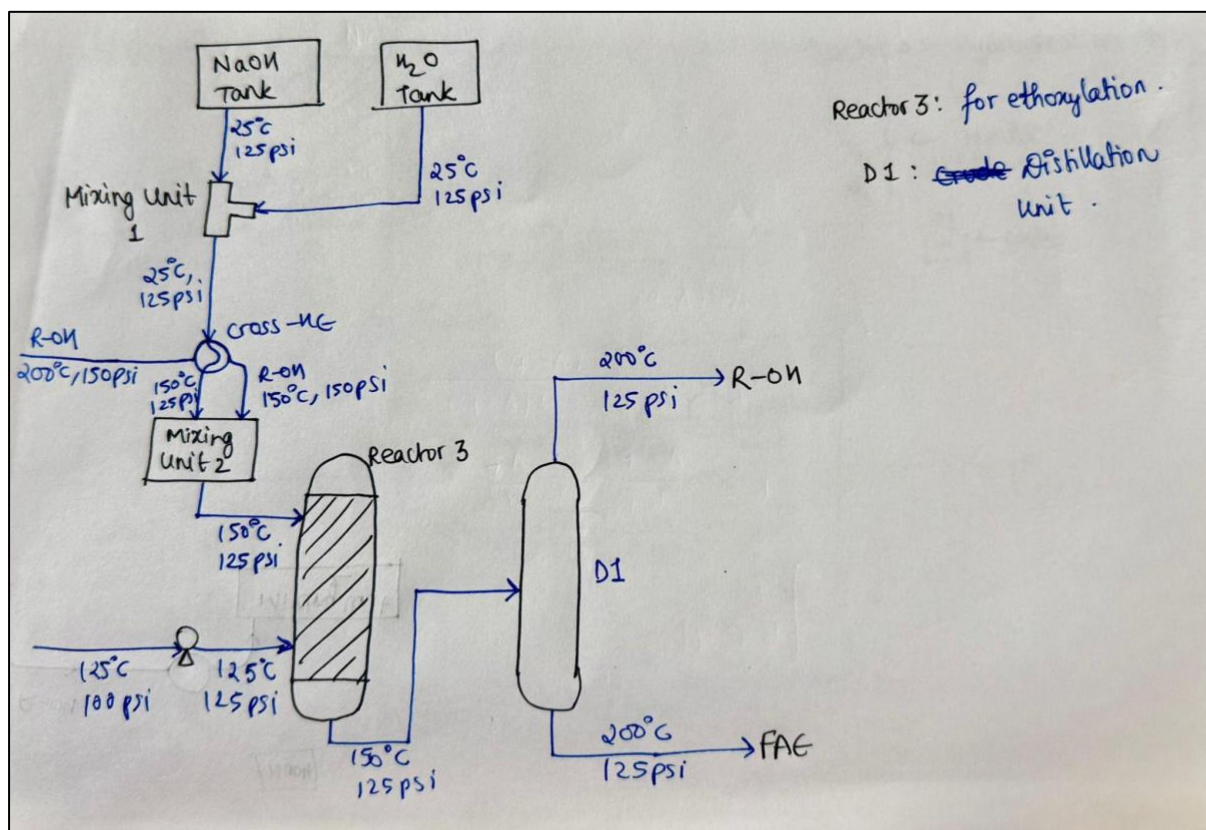 NaOH
Tank
H₂O
Tank
Reactor 3: for ethoxylation.
D1: Distillation
Unit.
25°C
125psi
25°C
125psi
Mixing Unit
1
25°C,
125psi
Cross-HE
R-OH
200°C, 150psi
150°C
125psi
R-OH
150°C, 150psi
Mixing
Unit 2
Reactor 3
150°C
125psi
200°C
125psi
R-OH
D1
125°C
100psi
125°C
125psi
150°C
125psi
200°C
125psi
FAE